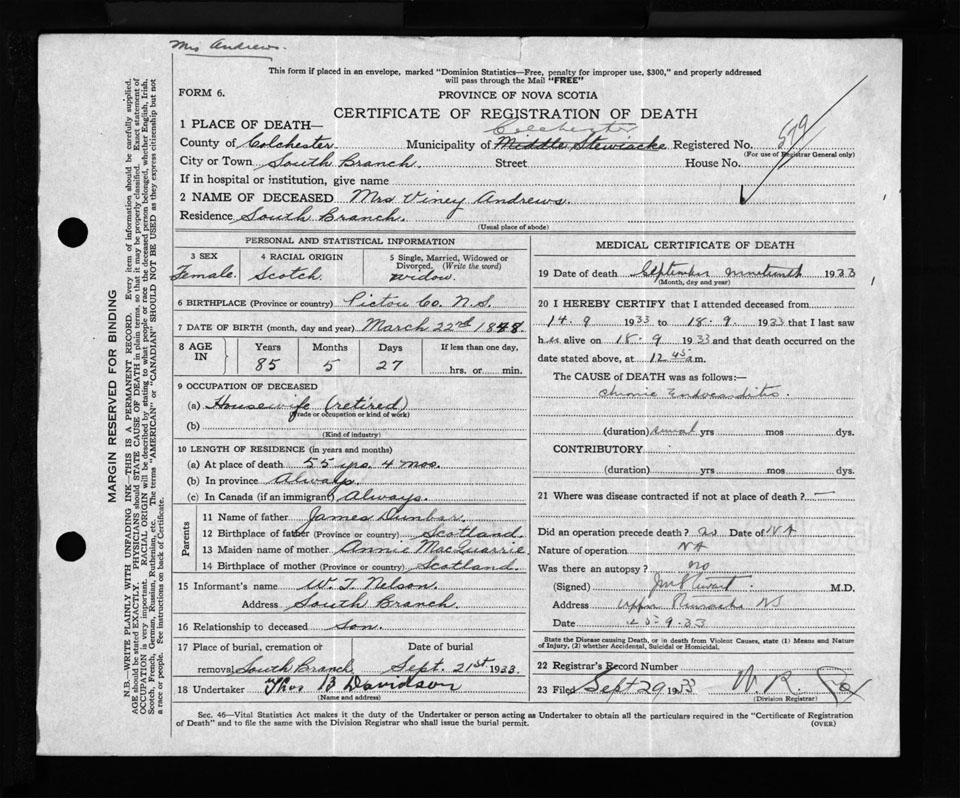 Mrs Andrews.
This form if placed in an envelope, marked "Dominion Statistics—Free, penalty for improper use, $300," and properly addressed
will pass through the Mail "FREE"
FORM 6.
PROVINCE OF NOVA SCOTIA
CERTIFICATE OF REGISTRATION OF DEATH
1 PLACE OF DEATH—
Colchester
County of Colchester. Municipality of Middle Stewiacke Registered No. 579
(For use of Registrar General only)
City or Town South Branch. Street House No.
If in hospital or institution, give name
2 NAME OF DECEASED Mrs Viney Andrews.
Residence South Branch.
(Usual place of abode)
PERSONAL AND STATISTICAL INFORMATION
3 SEX 4 RACIAL ORIGIN 5 Single, Married, Widowed or
Divorced. (Write the word)
Female. Scotch. Widow.
6 BIRTHPLACE (Province or country) Pictou Co. N.S.
7 DATE OF BIRTH (month, day and year) March 22nd 1848.
8 AGE IN Years Months Days If less than one day,
85 5 27 hrs. or min.
9 OCCUPATION OF DECEASED
(a) Housewife (retired)
(Trade or occupation or kind of work)
(b)
(Kind of industry)
10 LENGTH OF RESIDENCE (in years and months)
(a) At place of death 55 yrs. 4 mos.
(b) In province Always.
(c) In Canada (if an immigrant) Always.
Parents
11 Name of father James Dunbar.
12 Birthplace of father (Province or country) Scotland.
13 Maiden name of mother Annie MacQuarrie
14 Birthplace of mother (Province or country) Scotland.
15 Informant's name W. T. Nelson.
Address South Branch.
16 Relationship to deceased Son.
17 Place of burial, cremation or Date of burial
removal South Branch Sept. 21st 1933.
18 Undertaker Thos B Davidson
(Name and address)
MEDICAL CERTIFICATE OF DEATH
19 Date of death September nineteenth 1933
(Month, day and year)
20 I HEREBY CERTIFY that I attended deceased from
14 - 9 1933 to 18 - 9 1933 that I last saw
her alive on 18 - 9 1933 and that death occurred on the
date stated above, at 12 45 a.m.
The CAUSE of DEATH was as follows:—
Chronic Endocarditis.
(duration) several yrs mos dys.
CONTRIBUTORY
(duration) yrs mos dys.
21 Where was disease contracted if not at place of death? —
Did an operation precede death? no Date of NA
Nature of operation NA
Was there an autopsy? no
(Signed) M.D.
Address Upper NS
Date 25-9-33
State the Disease causing Death, or in death from Violent Causes, state (1) Means and Nature
of Injury, (2) whether Accidental, Suicidal or Homicidal.
22 Registrar's Record Number
23 Filed Sept 29 1933 W. R.
(Division Registrar)
Sec. 46—Vital Statistics Act makes it the duty of the Undertaker or person acting as Undertaker to obtain all the particulars required in the "Certificate of Registration
of Death" and to file the same with the Division Registrar who shall issue the burial permit.
(OVER)
MARGIN RESERVED FOR BINDING
N.B.—WRITE PLAINLY WITH UNFADING INK—THIS IS A PERMANENT RECORD. Every item of information should be carefully supplied.
AGE should be stated EXACTLY. PHYSICIANS should STATE CAUSE OF DEATH in plain terms, so that it may be properly classified. Exact statement of
OCCUPATION is very important. RACIAL ORIGIN will be described by stating to what people or race the deceased person belonged, whether English, Irish,
Scotch, French, German, Russian, Ruthenian, etc. The terms "AMERICAN" or "CANADIAN" SHOULD NOT BE USED as they express citizenship but not
a race or people. See instructions on back of Certificate.